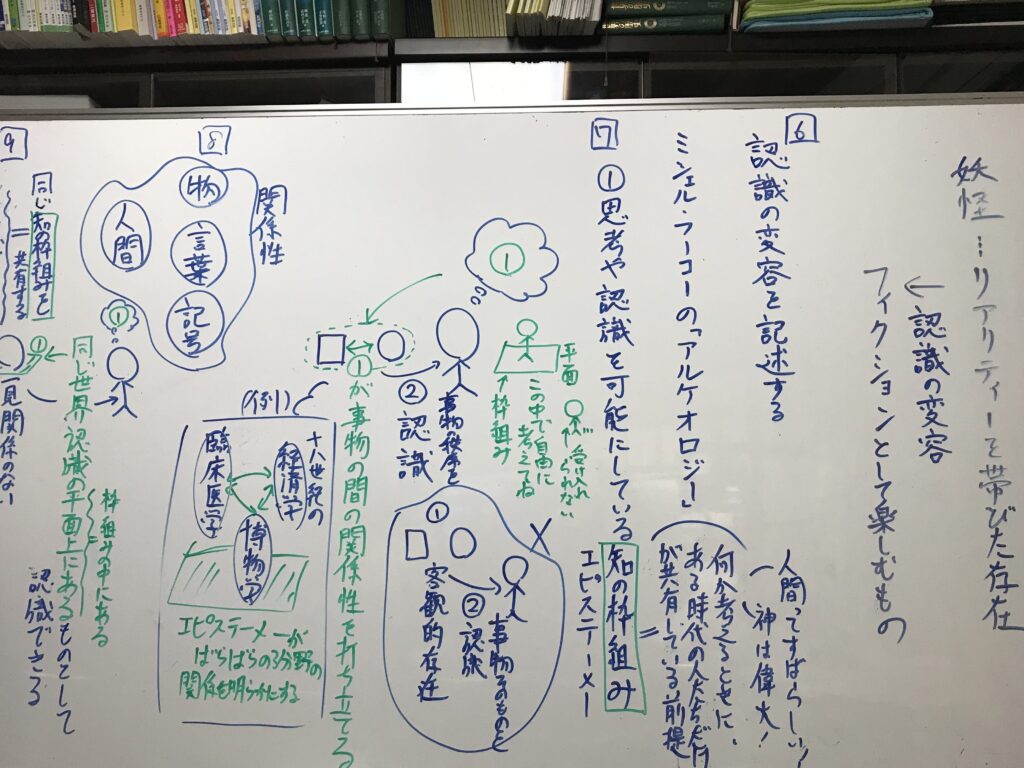 妖怪…リアリティーを帯びた存在
↓認識の変容
フィクションとして楽しむもの
6
認識の変容を記述する
ミシェル・フーコーの「アルケオロジー」
人間てすばらしい!
神は偉大!
何か考えるときに、
ある時代の人たちだけ
が共有している前提
=
7
①思考や認識を可能にしている
知の枠組み
エピステーメー
平面
受け入れ
られない
この中で自由に
考えてね
枠組み
①
事物の秩序を
②認識
①
客観的存在
②認識
事物そのものを
X
①が事物の間の関係性を打ち立てる
8
関係性
物
言葉
記号
人間
(例1)
十八世紀の
経済学
博物学
臨床医学
エピステーメーが
ばらばらの3分野の
関係を明らかにする
①
9
同じ知の枠組みを
=共有する
同じ世界認識の平面上にあるものとして
枠組みの中にある
認識できる
①
一見関係のない